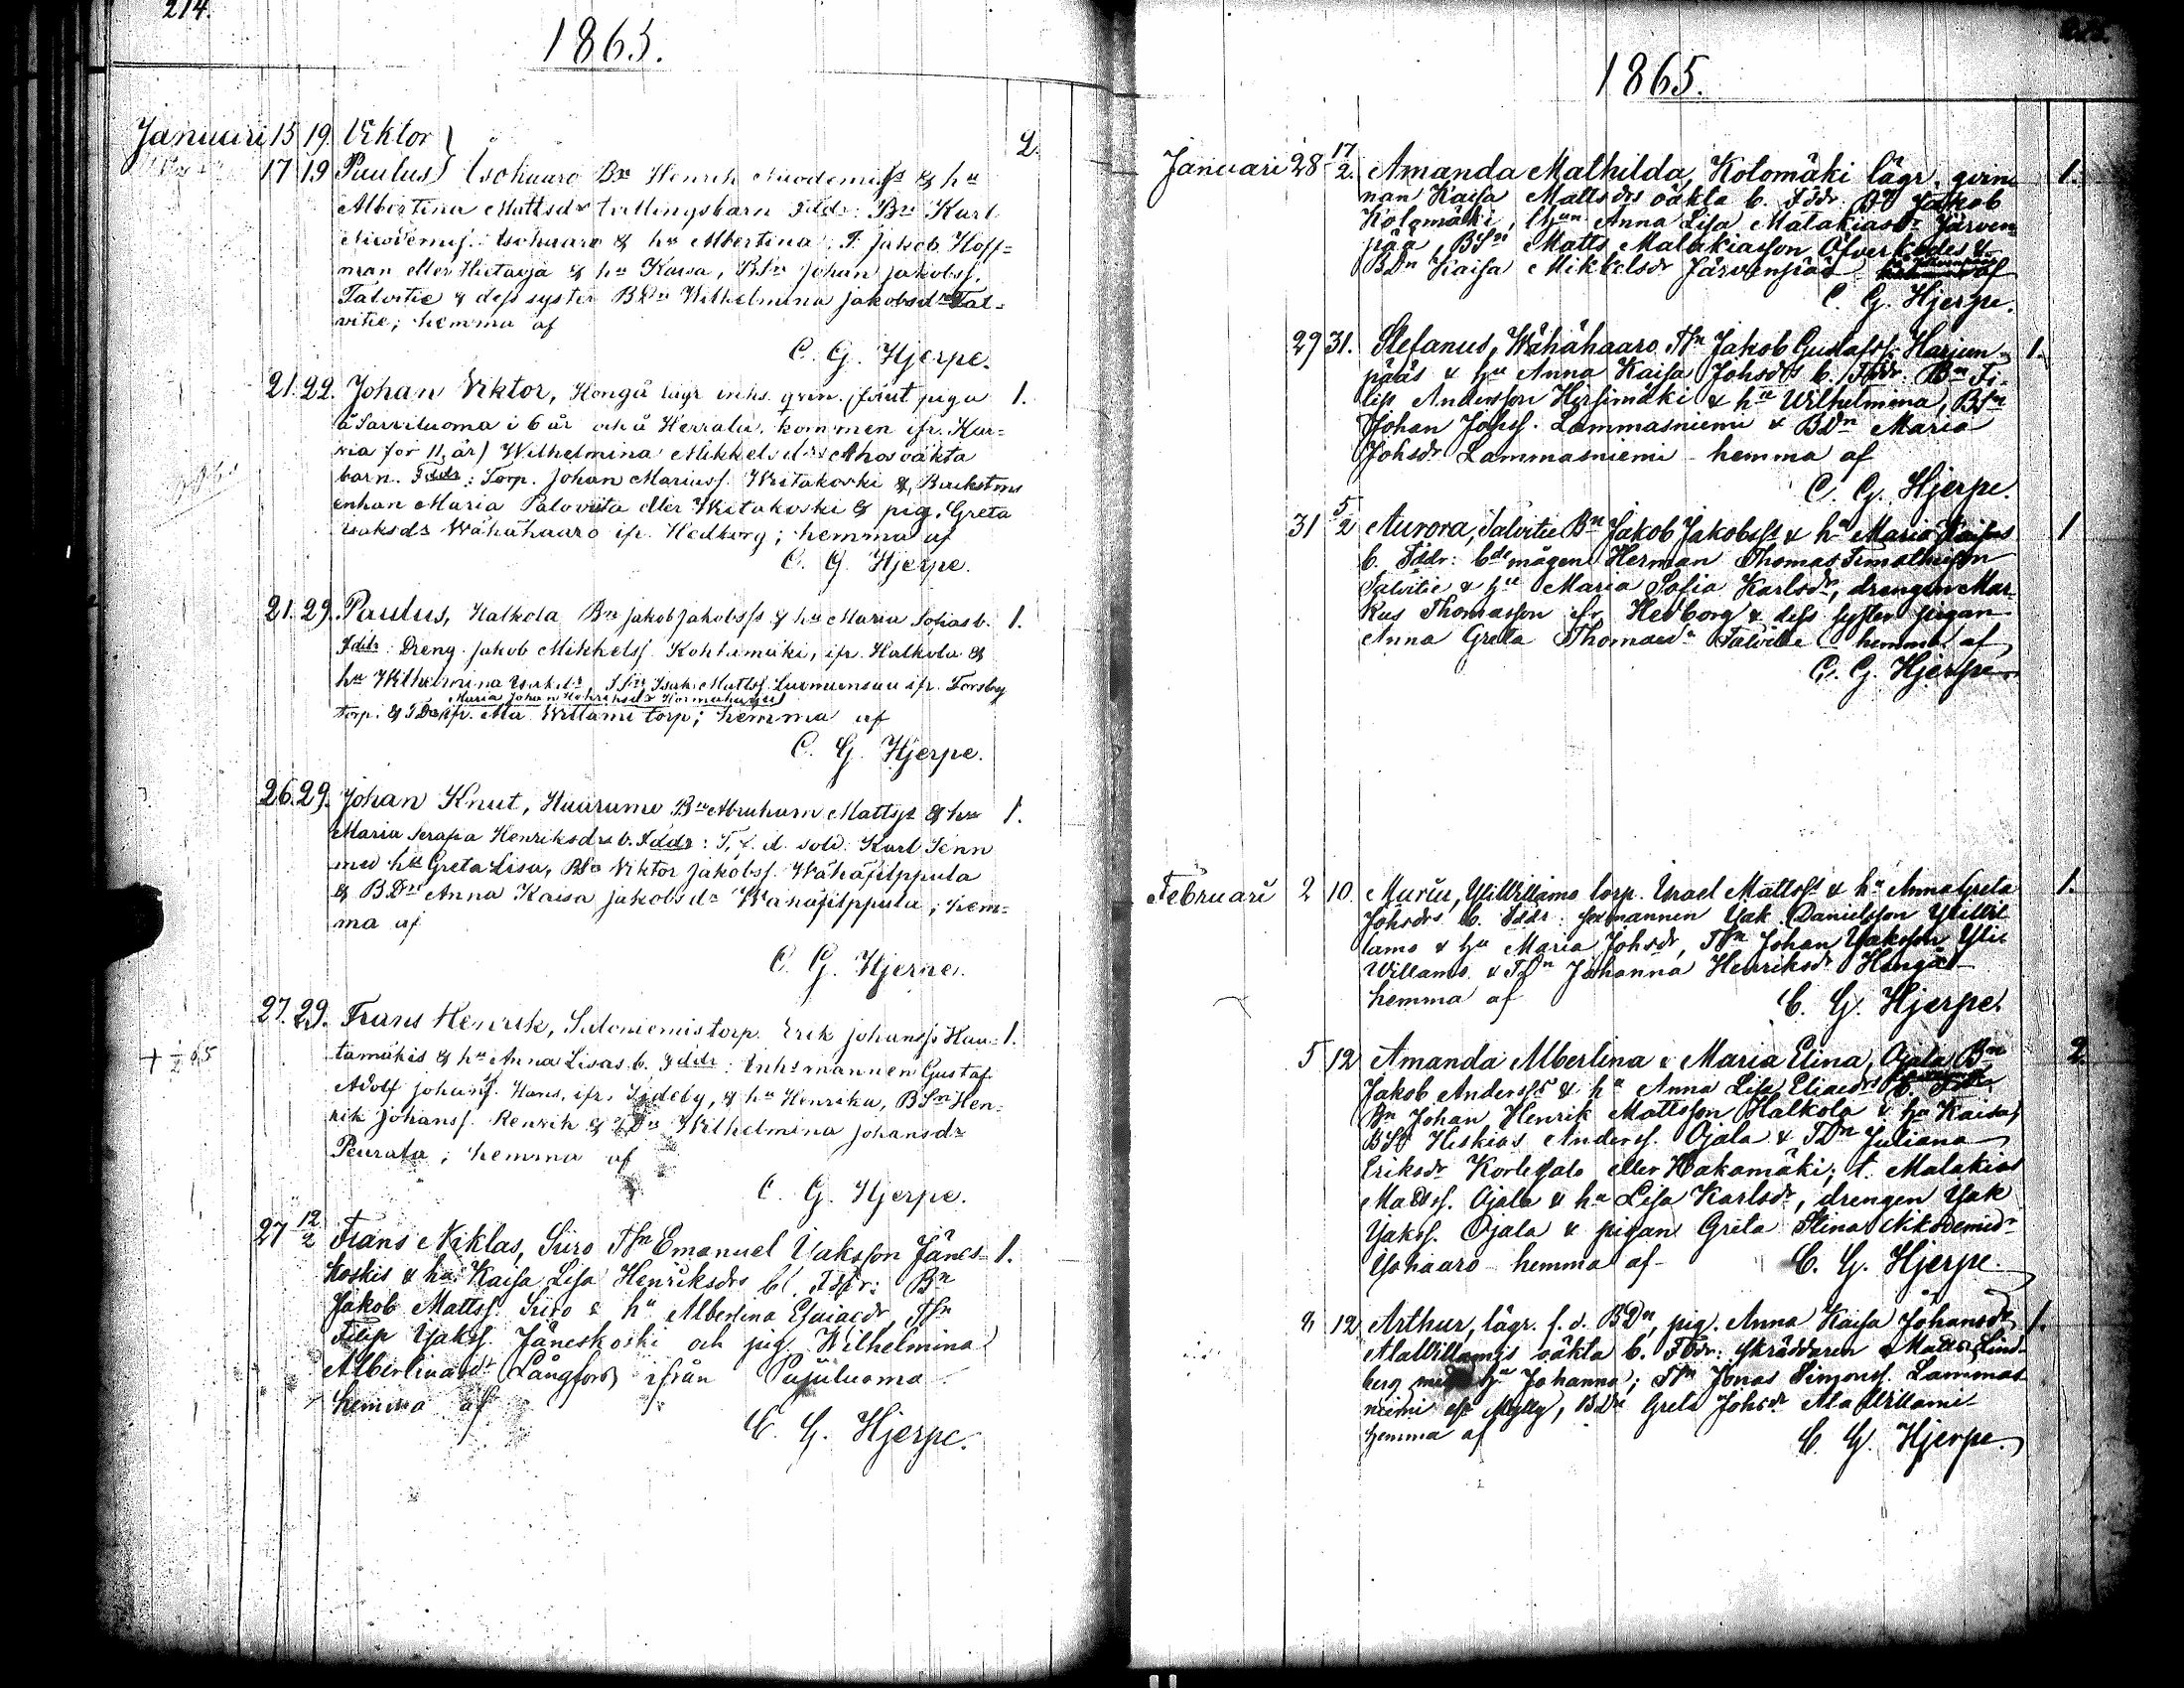 214.
1865.
Januari 15 19. Viktor
2.
17 19 Paulus Isohaaro Bn Henrik Nicodemi ss & hu
Albertina Mattsdrs tvillingsbarn Fddr: Bn Karl
Nicodemis. Isohaaro & hu Albertina, T. Jakob Hoff=
man eller Hietaoja & hu Kaisa, BSn Johan Jakobss.
Talvitie & dess syster BDn Wilhelmina Jakobsdr Tal=
vitie; hemma af
C. G. Hjerpe.
21. 22. Johan Viktor, Hongå lägr inhs. qvin. (förut piga 1.
å Sarviluoma i 6 år och å Herrala, kommen ifr. Kar=
via för 11 år) Wilhelmina Mikkelsdrs Ahos oäkta
barn. Fddr: Torp. Johan Mariuss. Wiitakoski &
enkan Maria Palovuta eller Wiitakoski & pig. Greta
Isaksdr Wähähaaro ifr. Hedborg; hemma af
C. G. Hjerpe.
21. 29. Paulus, Halkola Bn Jakob Jakobsss & hu Maria Sofias b. 1.
Fddr: Dreng. Jakob Mikkelss. Kohtamäki, ifr. Halkola &
hu Wilhelmina Isaksdr, TSn Isak Mattss. Luomansuu ifr. Forsby
Maria Johanna Henriksdr
torp. & TDn ifr. Ala Willami torp; hemma af
C. G. Hjerpe.
26. 29. Johan Knut, Haurumo Bn Abraham Mattsss & hu 1.
Maria Serafia Henriksdrs b. Fddr: T, f. d. sold. Karl Tenn
med hu Greta Lisa, BSn Viktor Jakobss. Wähäfilppula
& BDn Anna Kaisa Jakobsdr Wähäfilppula; hem=
ma af
C. G. Hjerpe.
27. 29. Frans Henrik, Saloniemis torp. Erik Johansss Hau= 1.
tamäkis & hu Anna Lisas b. Fddr: Inhsmannen Gustaf
Adolf Johanss. Hans, ifr. Sideby, & hu Henrika, BSn Hen=
rik Johanss. Renvik & TDn Wilhelmina Johansdr
Peurala; hemma af
C. G. Hjerpe.
27 12/2 Frans Niklas, Siiro TSn Emanuel Isaksson Jänes= 1.
koskis & hu Kaisa Lisa Henriksdrs b. Fddr: Bn
Jakob Mattss. Siiro & hu Albertina Esaiaedr, TSn
Filip Isakss. Jäneskoski och pig. Wilhelmina
Albertinasdr Långfors ifrån Pujuluoma
hemma af
C. G. Hjerpe.
1865.
Januari 28 17/2. Amanda Mathilda, Kotomäki lägr. qvin= 1.
nan Kaisa Mattsdrs oäkta b. Fddr: Bn Jakob
Kotomäki, hun Anna Lisa Malakiasdr Järven
pää, BSn Matts Malakiasson Öfverkodes &
BDn Kaisa Mikkelsdr Järvenpää af
C. G. Hjerpe.
29 31. Stefanus, Wähähaaro TSn Jakob Gustafss. Harjun= 1.
pääs & hu Anna Kaisa Johsdrs b. Fddr: Bn Fi=
lip Andersson Hirsimäki & hu Wilhelmina, BSn
Johan Johss. Lammasniemi & BDn Maria
Johsdr Lammasniemi - hemma af
C. G. Hjerpe.
31 5/2 Aurora, Talvitie Bn Jakob Jakobsss & hu Maria Kaisas 1
b. Fddr: bdemågen Herman Thomas Timotheisson
Talvitie & hu Maria Sofia Karlsdr, drengen Mar=
kus Thomasson ifr Hedborg & dess syster pigan
Anna Greta Thomasdr Talvitie - hemma af
C. G. Hjerpe
Februari 2 10. Maria, Yliwillamo torp. Israel Mattsss & hu Anna Greta 1.
Johsdrs b. Fddr: sexmannen Isak Danielsson Yliwil
lamo & hu Maria Johsdr, TSn Johan Isaksson Yli
Willamo & TDn Johanna Henriksdr Hongå -
hemma af
C. G. Hjerpe.
5 12 Amanda Albertina & Maria Elina, Ojala Bn 2.
Jakob Andersss & hu Anna Lisa Eliaedrs
Bn Johan Henrik Mattsson Halkola & hu Kaisa,
BSn Heskias Anderss. Ojala & TDn Juliana
Eriksdr Korkesalo eller Hakamäki; t. Malakias
Mattss. Ojala & hu Lisa Karlsdr, drengen Isak
Isakss. Ojala & pigan Greta Stina Nikodemidr
Isohaaro - hemma af - C. G. Hjerpe.
8 12 Arthur, lägr. f. d. BDn, pig. Anna Kaisa Johansdr 1.
AlaWillamis oäkta b. Fddr: skräddaren Matts Lind=
berg med hu Johanna; TSn Jonas Simonss. Lammas
niemi ifr Mylly, BDn Greta Johsdr Ala Willami
hemma af
C. G. Hjerpe.